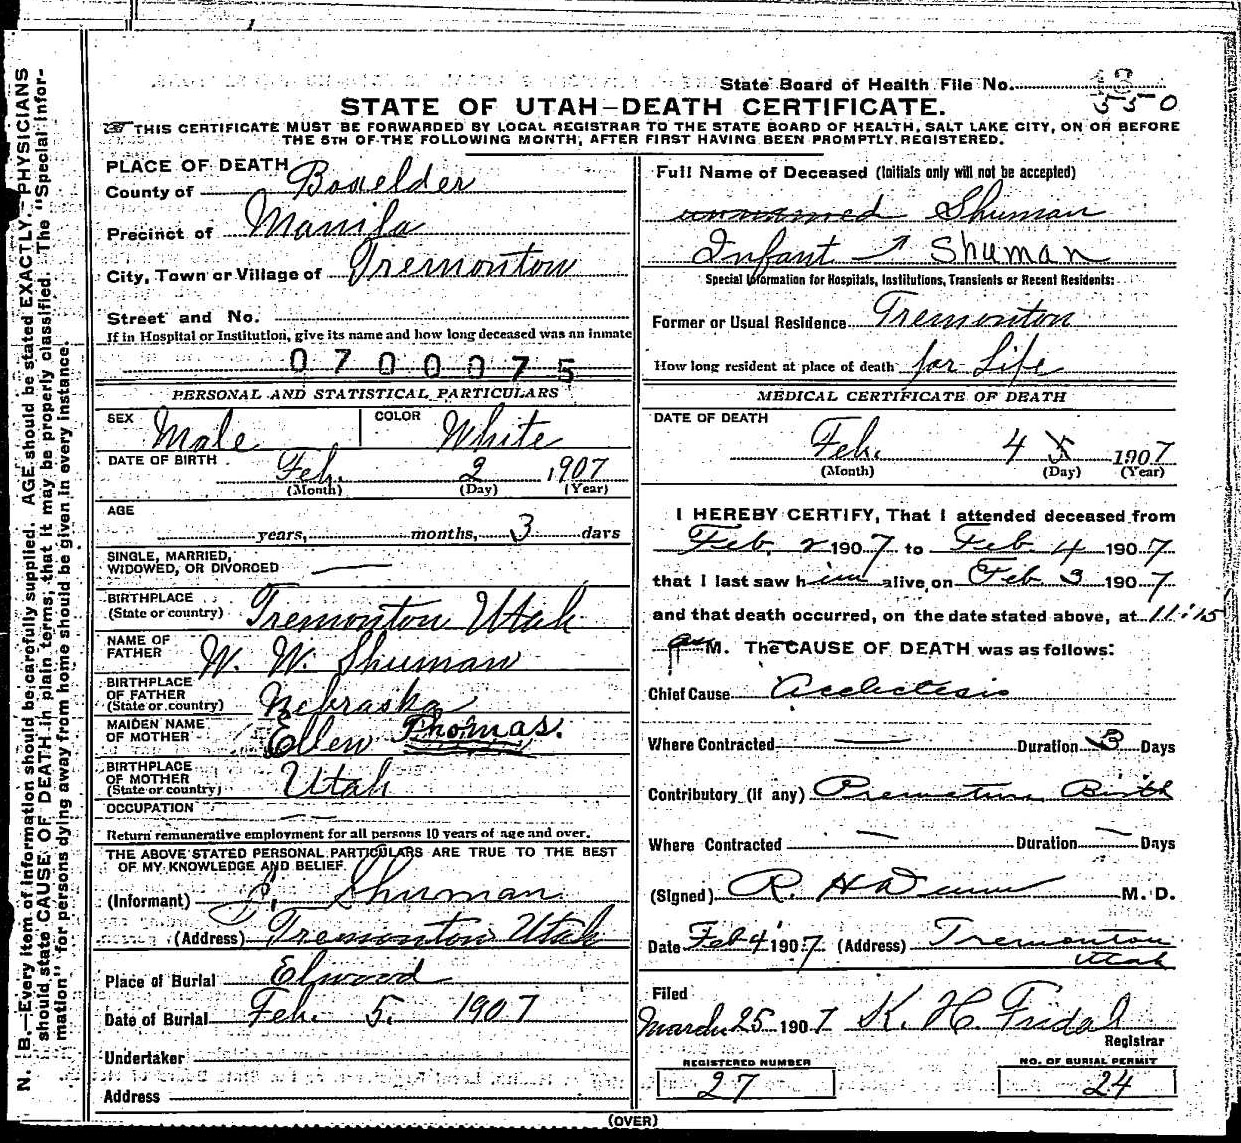 State Board of Health File No.
550
STATE OF UTAH—DEATH CERTIFICATE.
THIS CERTIFICATE MUST BE FORWARDED BY LOCAL REGISTRAR TO THE STATE BOARD OF HEALTH, SALT LAKE CITY, ON OR BEFORE
THE 5TH OF THE FOLLOWING MONTH, AFTER FIRST HAVING BEEN PROMPTLY REGISTERED.
N. B.—Every item of information should be carefully supplied. AGE should be stated EXACTLY. PHYSICIANS
should state CAUSE OF DEATH in plain terms, that it may be properly classified. The "Special Infor-
mation" for persons dying away from home should be given in every instance.
PLACE OF DEATH
County of Boxelder
Precinct of Manila
City, Town or Village of Tremonton
Street and No.
If in Hospital or Institution, give its name and how long deceased was an inmate
0700075
PERSONAL AND STATISTICAL PARTICULARS
SEX Male COLOR White
DATE OF BIRTH Feb. 2 1907
(Month) (Day) (Year)
AGE
years, months, 3 days
SINGLE, MARRIED,
WIDOWED, OR DIVORCED —
BIRTHPLACE
(State or country) Tremonton Utah
NAME OF
FATHER W. W. Shuman
BIRTHPLACE
OF FATHER
(State or country) Nebraska
MAIDEN NAME
OF MOTHER Ellen Thomas.
BIRTHPLACE
OF MOTHER
(State or country) Utah
OCCUPATION
Return remunerative employment for all persons 10 years of age and over.
THE ABOVE STATED PERSONAL PARTICULARS ARE TRUE TO THE BEST
OF MY KNOWLEDGE AND BELIEF.
(Informant) Shuman
(Address) Tremonton Utah
Place of Burial Elwood
Date of Burial Feb. 5. 1907
Undertaker
Address
Full Name of Deceased (Initials only will not be accepted)
unnamed Shuman
Infant Shuman
Special Information for Hospitals, Institutions, Transients or Recent Residents:
Former or Usual Residence Tremonton
How long resident at place of death for Life
MEDICAL CERTIFICATE OF DEATH
DATE OF DEATH
Feb. 4 5 1907
(Month) (Day) (Year)
I HEREBY CERTIFY, That I attended deceased from
Feb. 2 1907 to Feb. 4 1907
that I last saw him alive on Feb 3 1907
and that death occurred, on the date stated above, at 11:15
M. The CAUSE OF DEATH was as follows:
Chief Cause Acelectesis
Where Contracted — Duration 3 Days
Contributory (if any) Premature Birth
Where Contracted — Duration — Days
(Signed) R. M. D.
Date Feb 4 1907 (Address) Tremonton
Utah
Filed
March 25 1907 K. H. Fridal
Registrar
REGISTERED NUMBER NO. OF BURIAL PERMIT
27 24
(OVER)